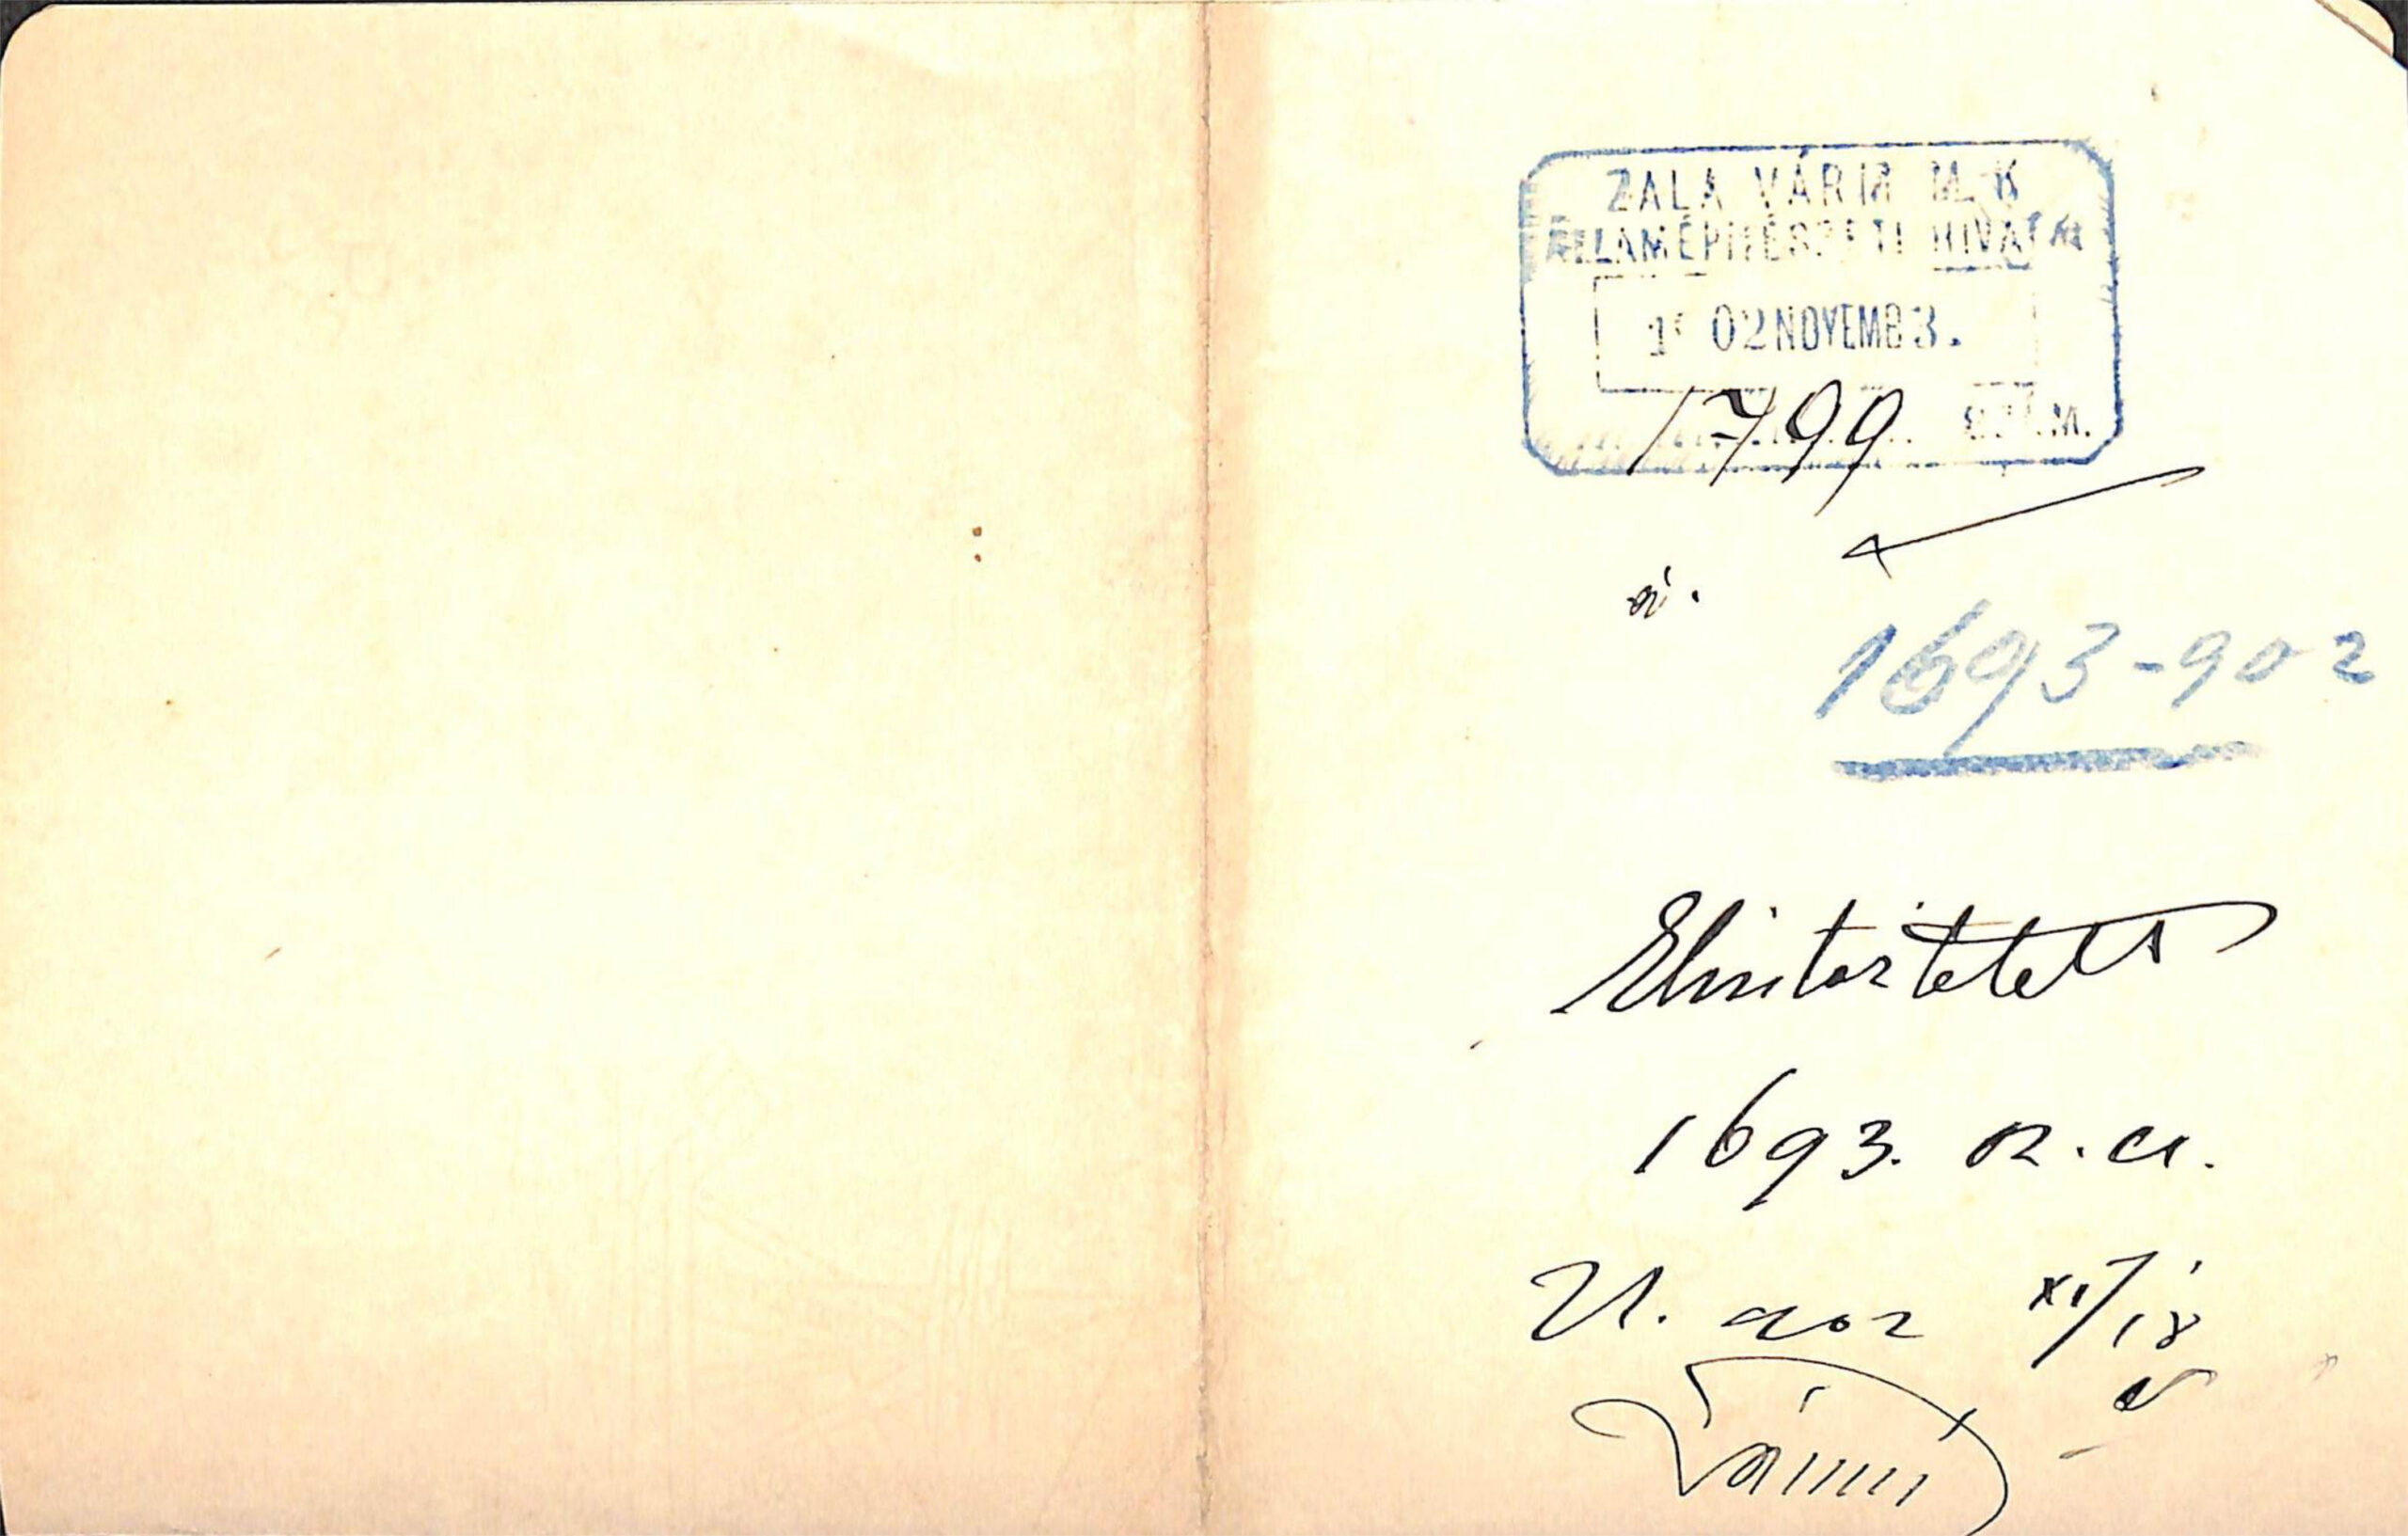 ZALA VÁRM M. K
ÁLLAMÉPITÉSZETI HIVATAL
1902 NOVEMB 3.
1799 SZÁM.
1693-902
Elintéztetett
1693. sz. a.
902 XI/18